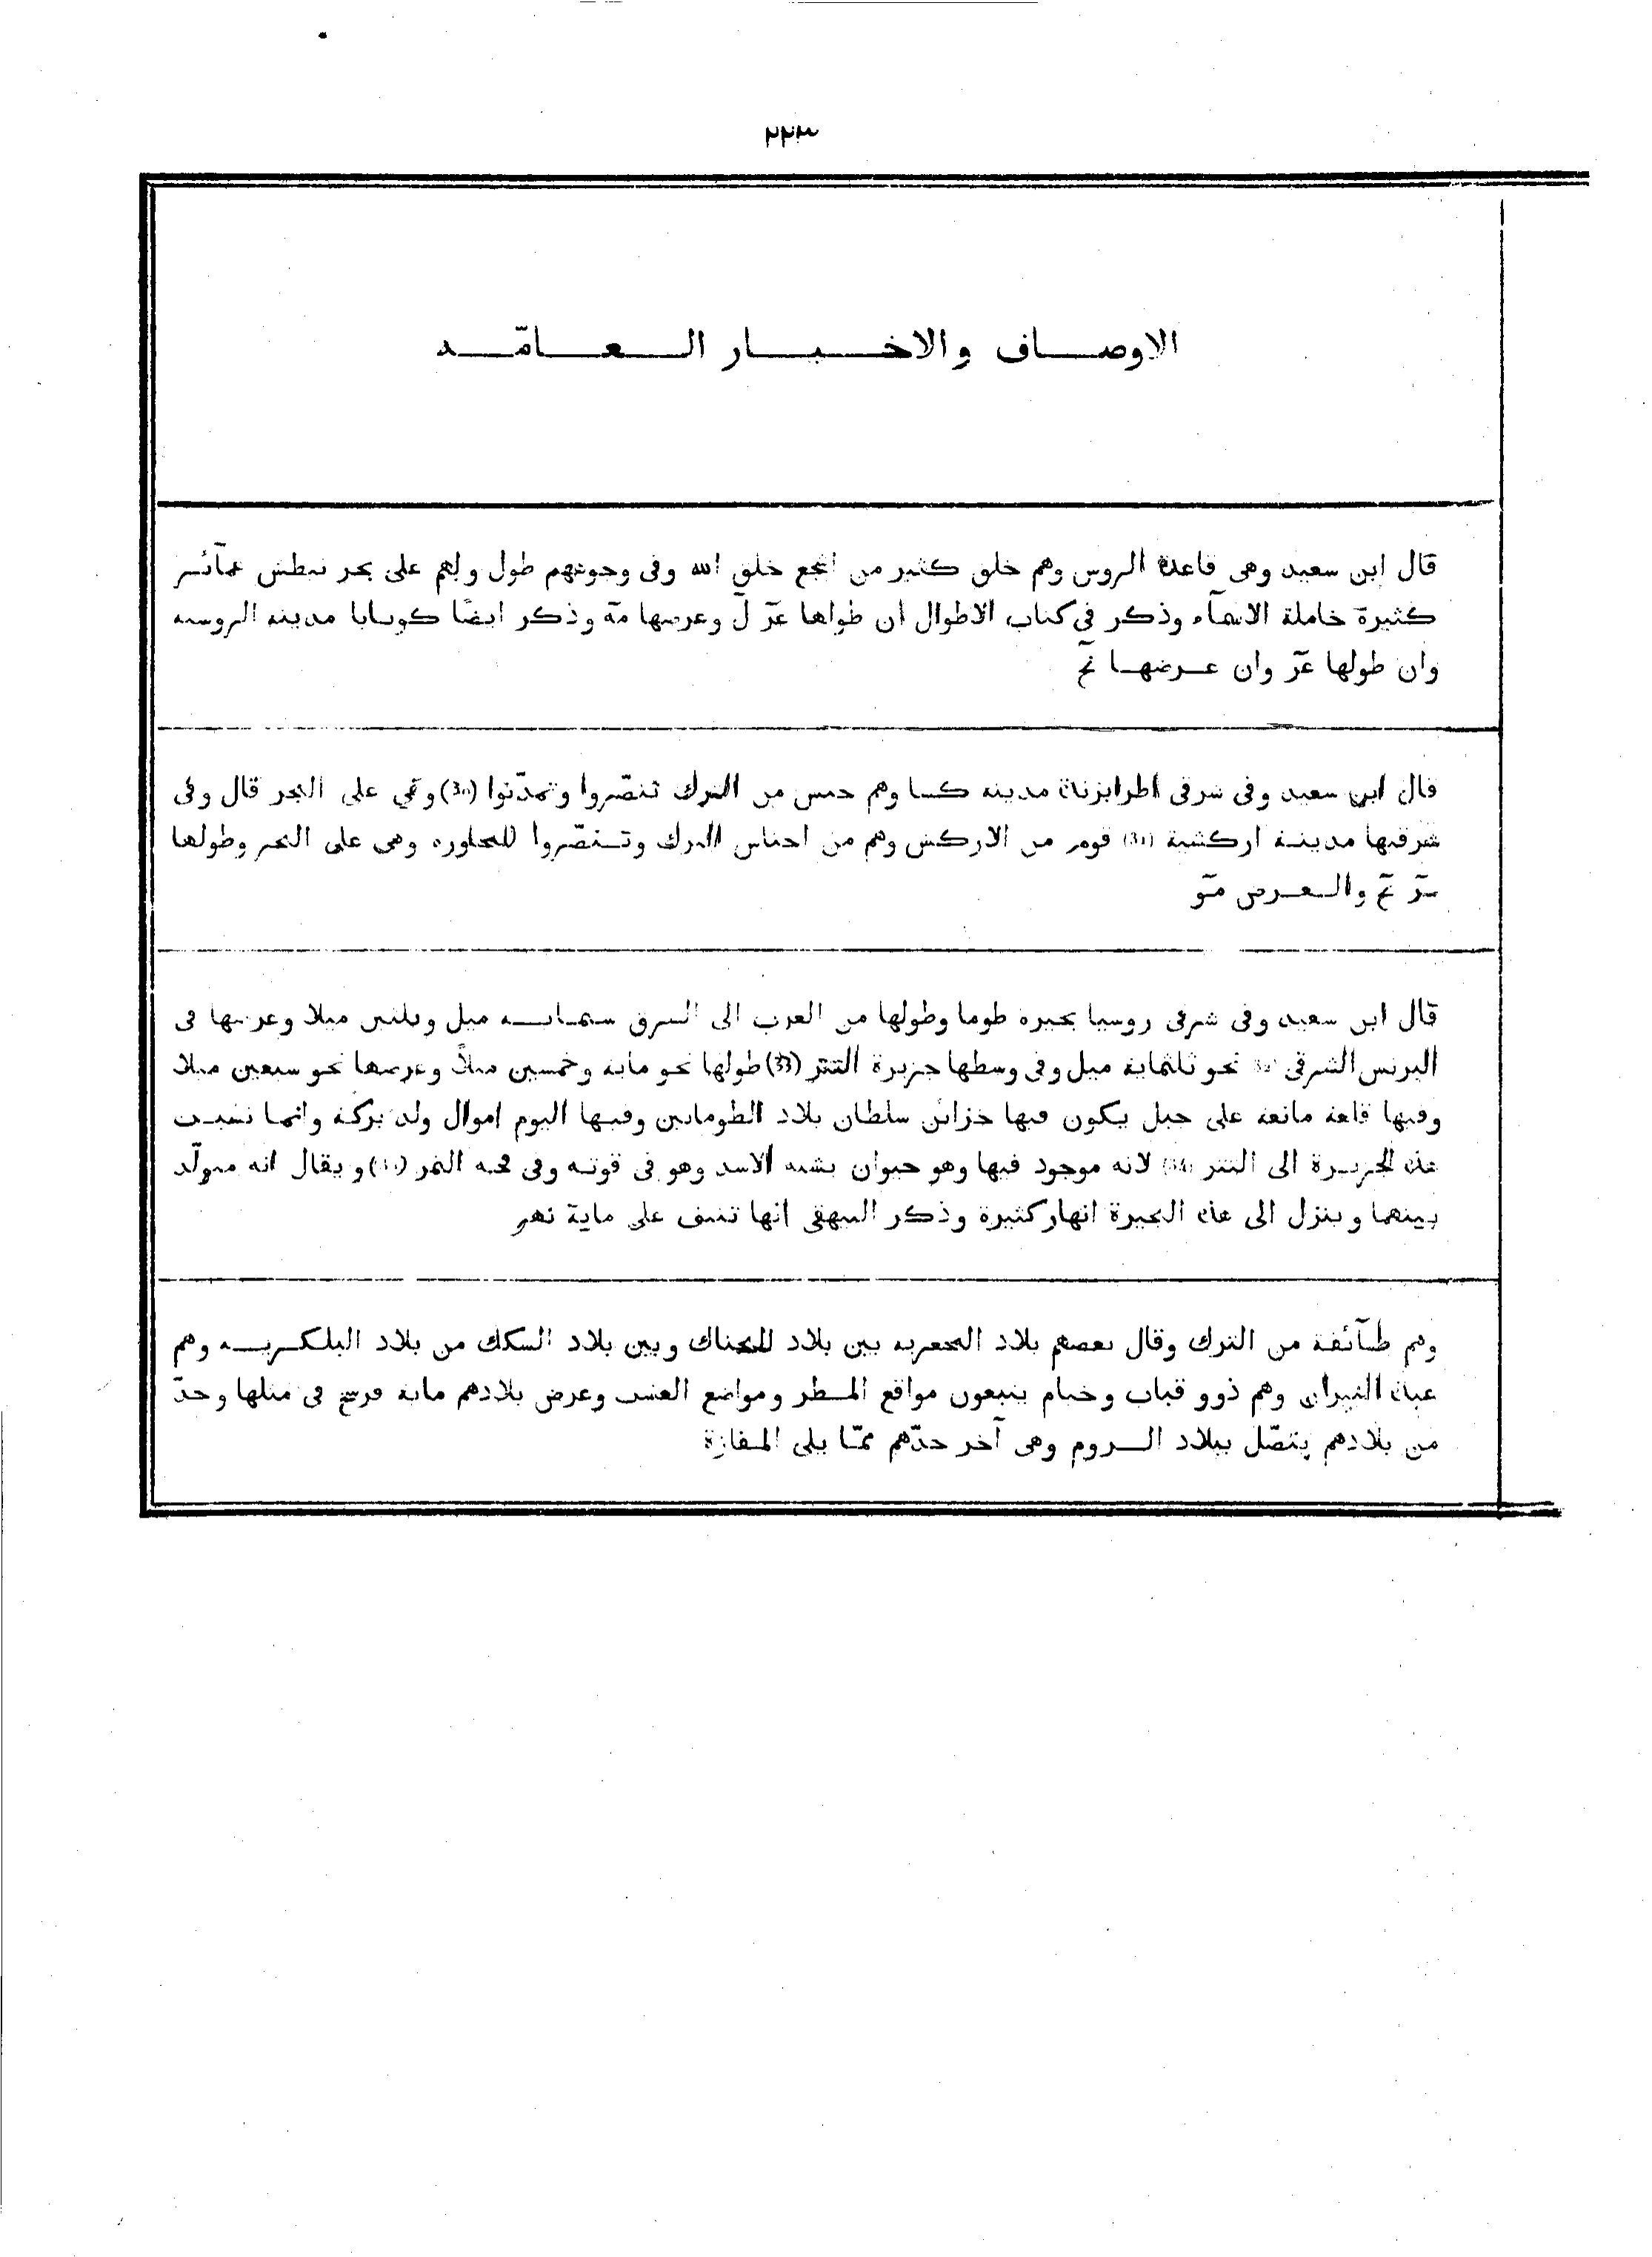 ٢٢٣
الاوصاف والاخبار العامّة
قال ابن سعيد وهى قاعدة الروس وهم خلق كثير من اشجع خلق الله وفى وجوههم طول ولهم على بحر نيطش عمآئر
كثيرة خاملة الاسمآء وذكر فى كتاب الاطوال ان طولها عز ل وعرضها مة وذكر ايضًا كويابا مدينة الروسية
وان طولها عز وان عرضها نح
قال ابن سعيد وفى شرقى اطرابزندة مدينة كسا وهم جنس من الترك تنصّروا وتمدّنوا (30) وهى على البحر قال وفى
شرقيها مدينة اركشية (31) قوم من الاركش وهم من اجناس الترك وتنصّروا للمجاورة وهى على البحر وطولها
نح والعرض مو
قال ابن سعيد وفى شرقى روسيا بحيرة طوما وطولها من الغرب الى الشرق ستماية ميل وثلثين ميلا وعرضها فى
البرنس الشرقى نحو ثلثماية ميل وفى وسطها جزيرة التتر (33) طولها نحو ماية وخمسين ميلاً وعرضها نحو سبعين ميلا
وفيها قلعة مانعة على جبل يكون فيها خزائن سلطان بلاد الطومانيين وفيها اليوم اموال ولد بركة وانما نسبت
هذه الجزيرة الى التتر (34) لانه موجود فيها وهو حيوان يشبه الاسد وهو فى قوته وفى النمر ويقال انه متولّد
بينهما وينزل الى هذه البحيرة انهار كثيرة وذكر البيهقى انها تنيف على ماية نهر
وهم طآئفة من الترك وقال بعضهم بلاد المجغرية بين بلاد البجناك وبين بلاد السكك من بلاد البلكرية وهم
عبدة النيران وهم ذوو قباب وخيام يتبعون مواقع المطر ومواضع العشب وعرض بلادهم ماية فرسخ فى مثلها وحدّ
من بلادهم يتصّل ببلاد الروم وهى آخر حدّهم ممّا يلى المفازة